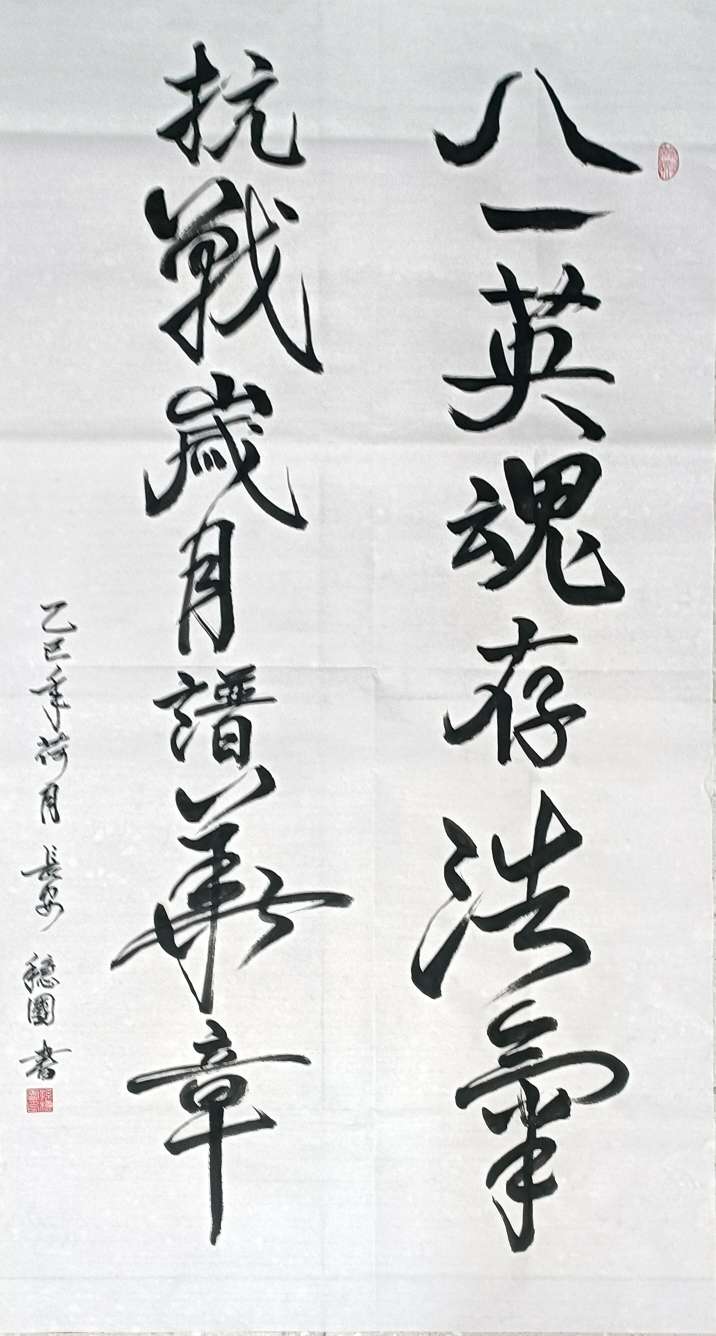 八一英魂存浩氣
抗戰歲月譜華章
乙巳年荷月 長安 穩國 书